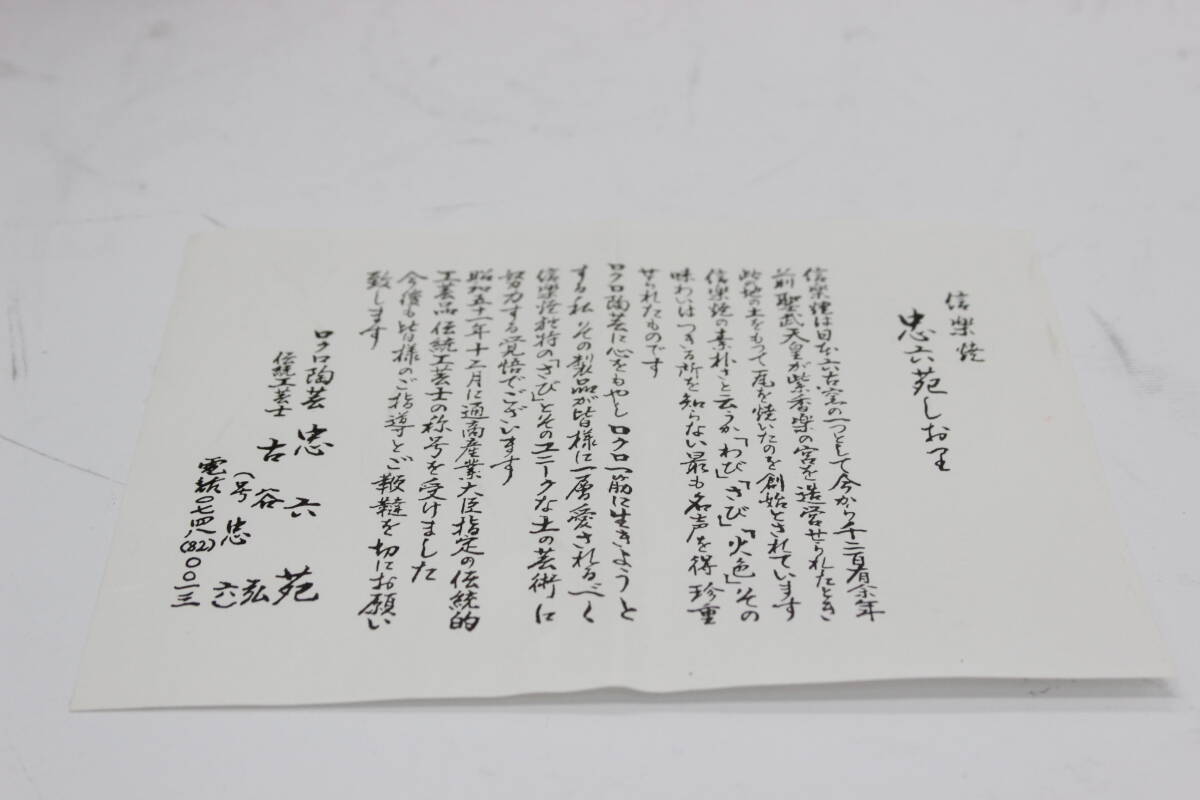 信楽焼
忠六苑しおり
信楽焼は日本六古窯の一つとして今から千二百有余年
前聖武天皇が紫香楽の宮を造営せられたとき
此地の土をもって瓦を焼いたのを創始とされています
信楽焼の素朴さと云うか「わび」「さび」「火色」その
味わいはつきる所を知らない最も名声を得珍重
せられたものです
ロクロ陶芸に心をもやしロクロ一筋に生きようと
する私その製品が皆様に一層愛されるべく
信楽焼独特の「さび」とそのユニークな土の芸術に
努力する覚悟でございます
昭和五十一年十二月に通商産業大臣指定の伝統的
工芸品伝統工芸士の称号を受けました
今後も皆様のご指導とご鞭韃を切にお願い
致します
ロクロ陶芸 忠六苑
伝統工芸士 古谷弘
(号忠六)
電話〇七四八(82)〇〇一三